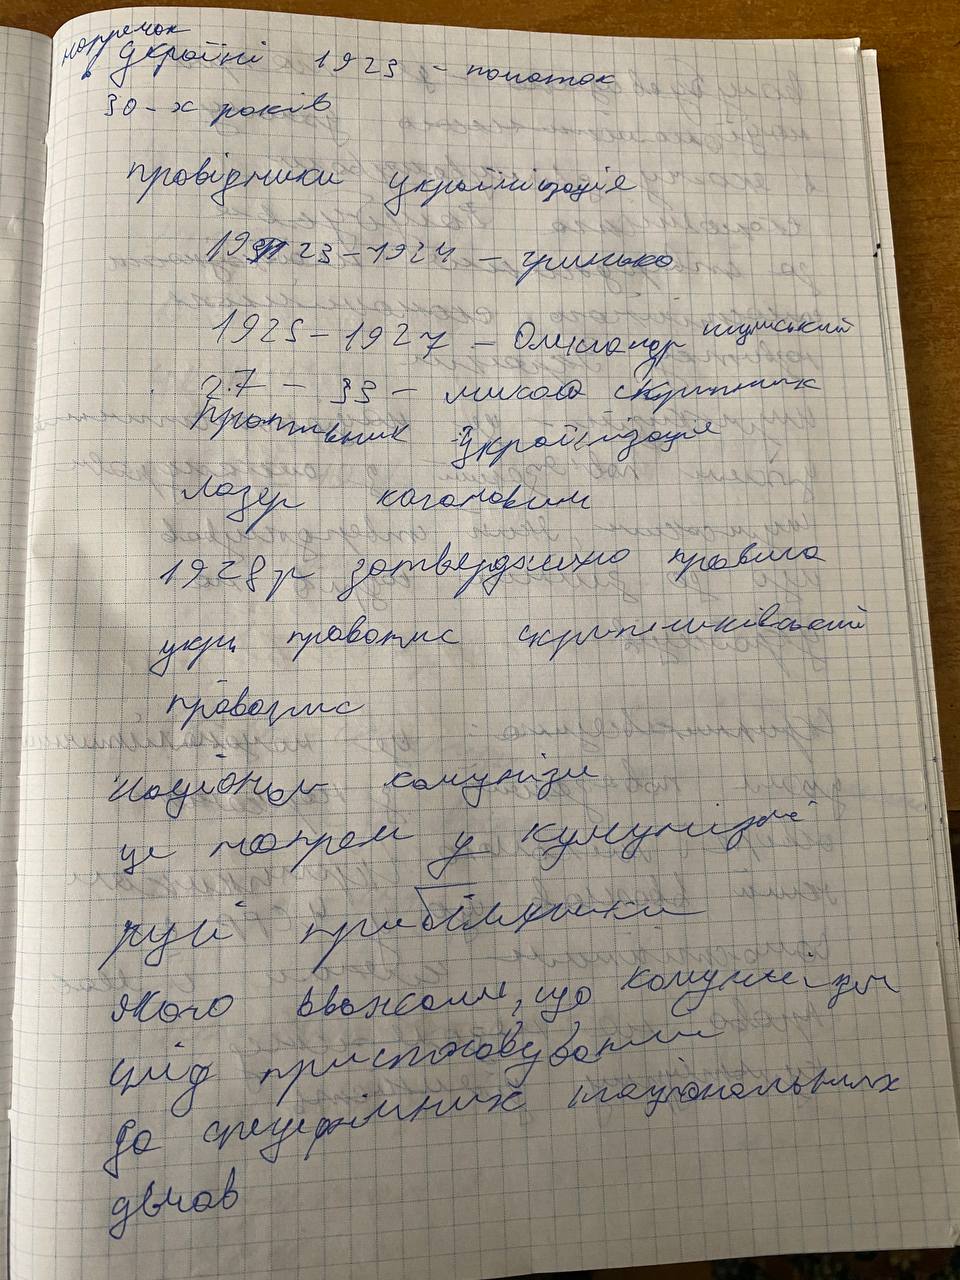 в Україні 1923 - початок
30-х років
провідники українізація
1923-1924 - гринько
1925-1927 - Олександр шумський
27 - 33 - микола скрипник
Противник Українізація
Лазер каганович
1928р затверджино правила
укр правопис скрипниківський
правопис
націонал комунізм
це напрям у кумунізмі
руй прибільники
якого вважали, що комунізм
слід пристосовувати
до специфічних національних